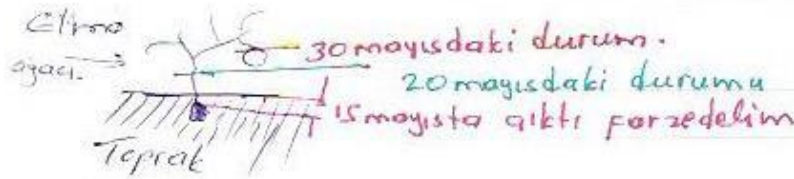 Elma
ağacı.
30 mayısdaki durum.
20 mayısdaki durumu
15 mayısta çıktı farzedelim
Toprak